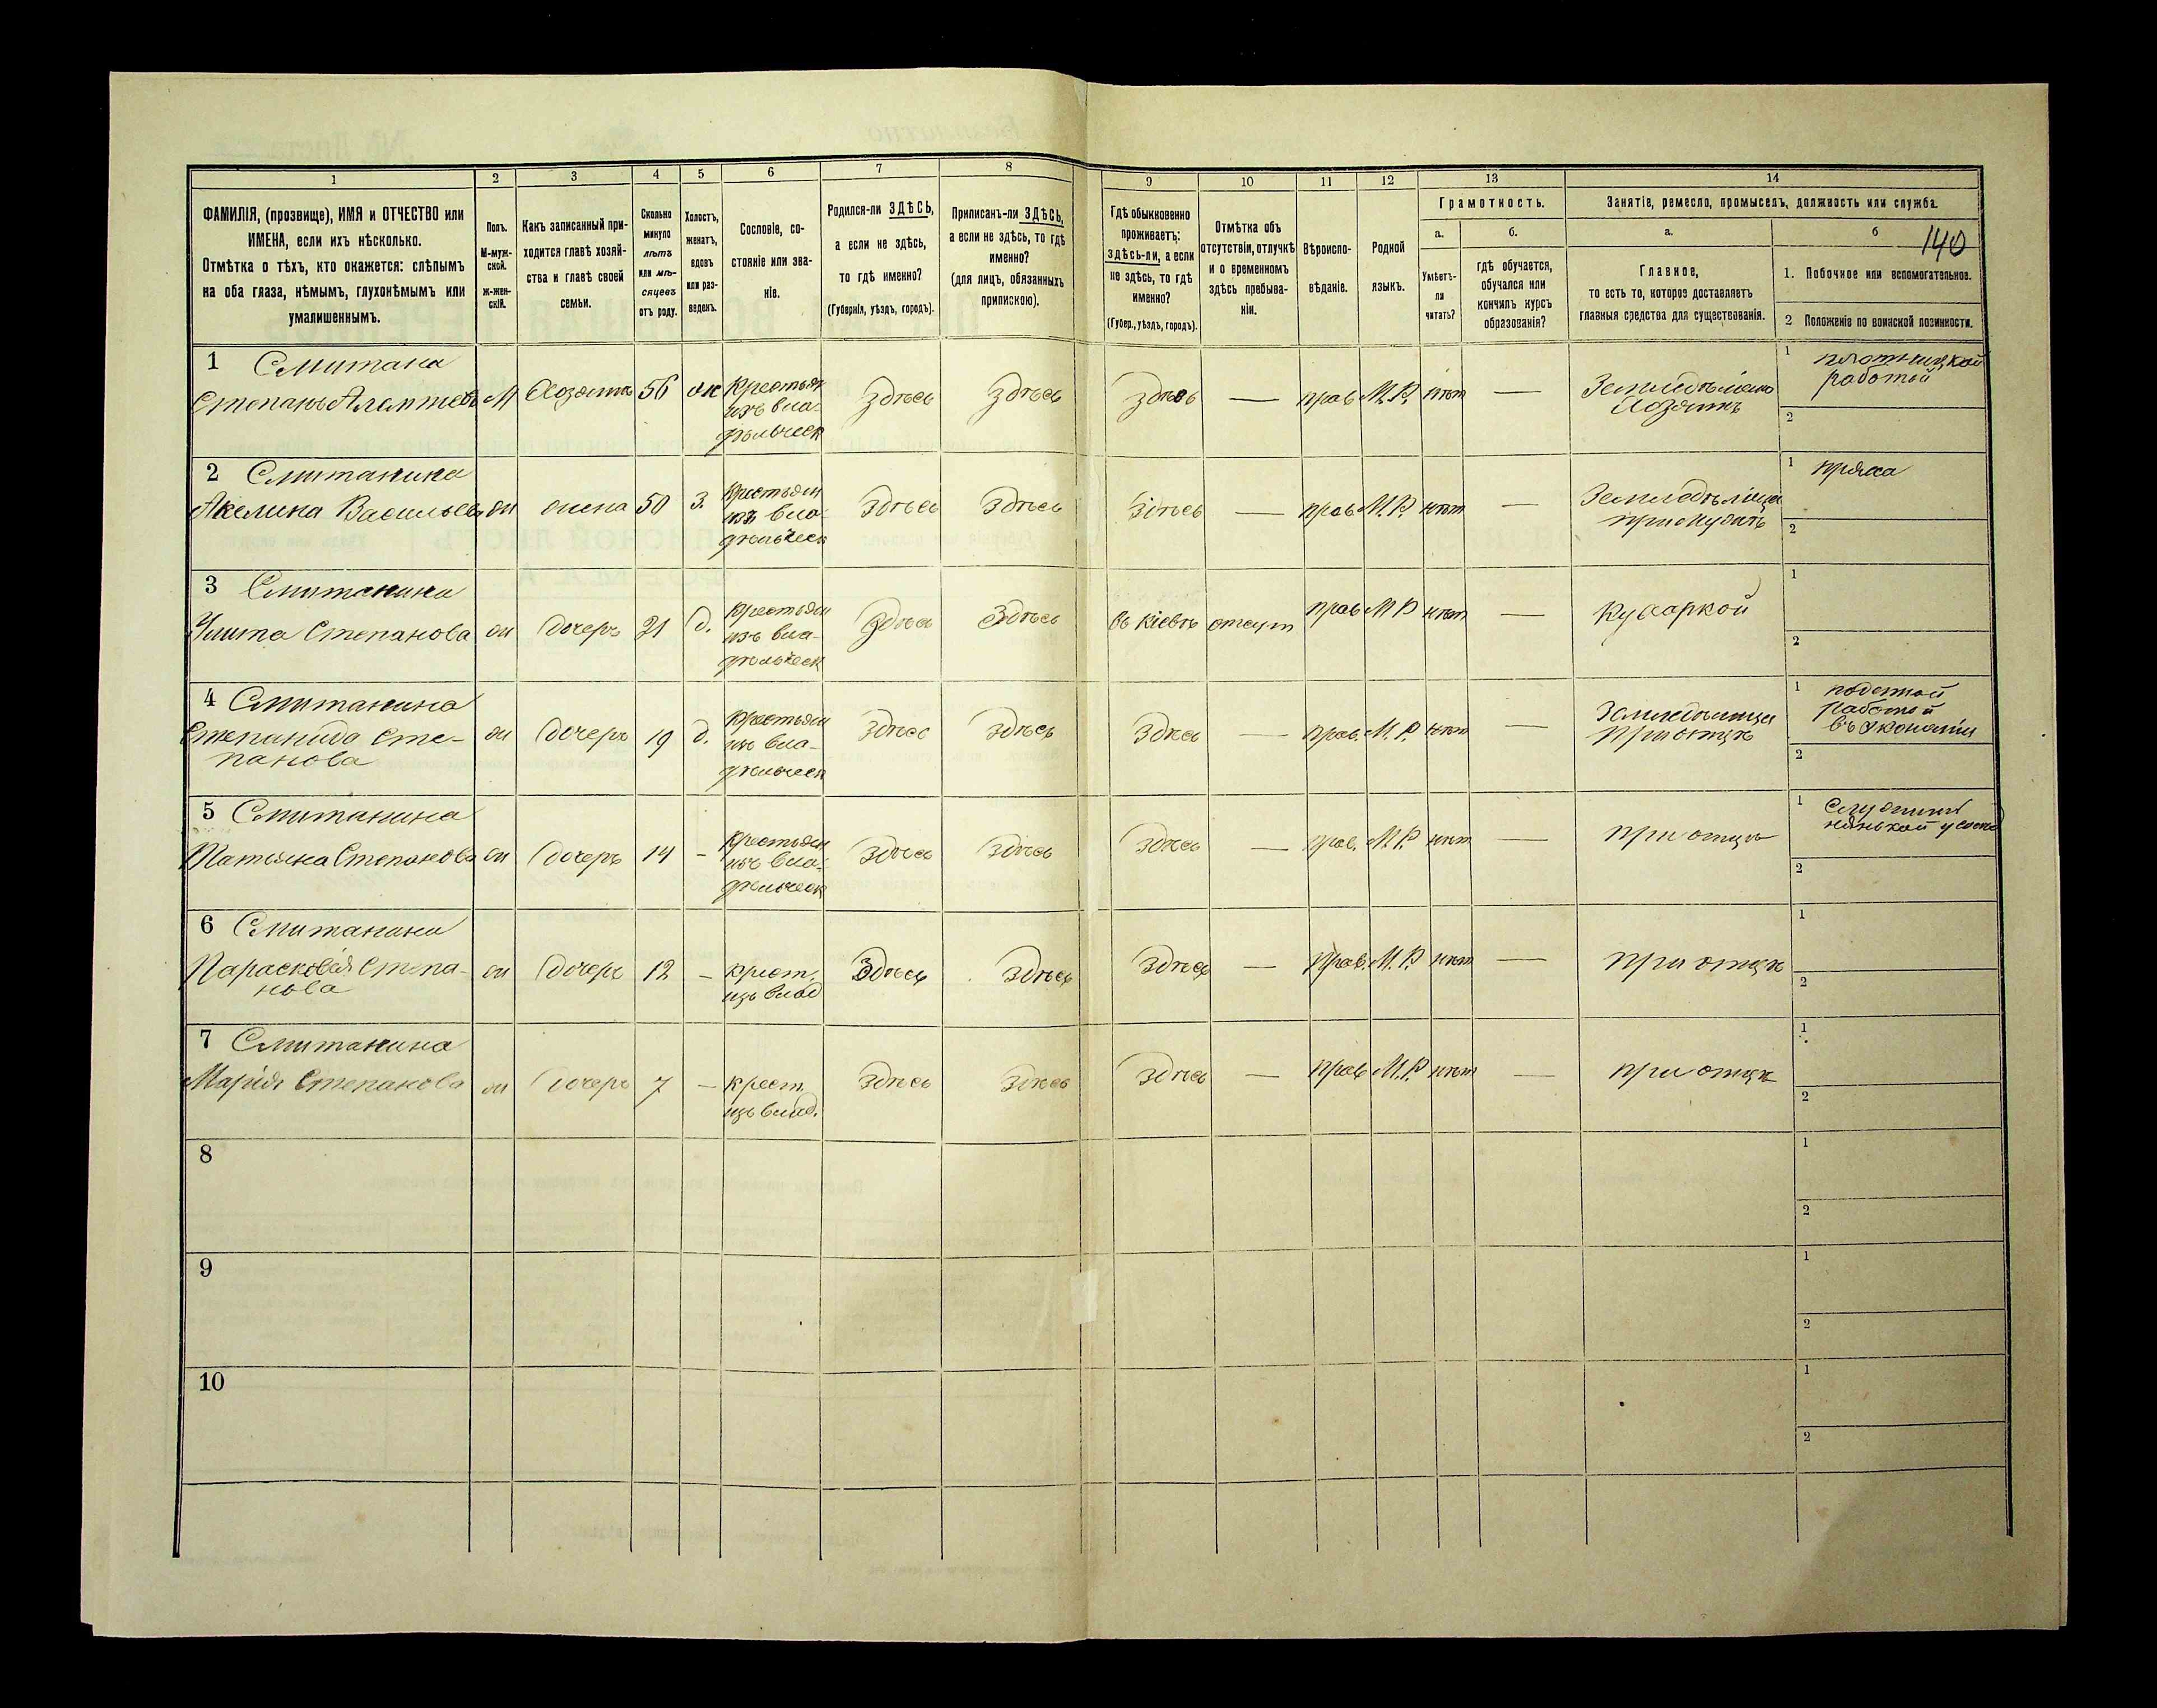 1 2 3 4 5 6 7 8 9 10 11 12 13 14
ФАМИЛІЯ, (прозвище), ИМЯ и ОТЧЕСТВО или
ИМЕНА, если ихъ нѣсколько.
Отмѣтка о тѣхъ, кто окажется: слѣпымъ
на оба глаза, нѣмымъ, глухонѣмымъ или
умалишеннымъ.
Полъ.
М-муж-
ской.
ж-жен-
скій.
Какъ записанный при-
ходится главѣ хозяй-
ства и главѣ своей
семьи.
Сколько
минуло
лѣтъ
или мѣ-
сяцевъ
отъ роду.
Холостъ,
женатъ,
вдовъ
или раз-
веденъ.
Сословіе, со-
стояніе или зва-
ніе.
Родился-ли ЗДѢСЬ,
а если не здѣсь,
то гдѣ именно?
(Губернія, уѣздъ, городъ).
Приписанъ-ли ЗДѢСЬ,
а если не здѣсь, то гдѣ
именно?
(для лицъ, обязанныхъ
припискою).
Гдѣ обыкновенно
проживаетъ:
здѣсь-ли, а если
не здѣсь, то гдѣ
именно?
(Губер., уѣздъ, городъ).
Отмѣтка объ
отсутствіи, отлучкѣ
и о временномъ
здѣсь пребыва-
ніи.
Вѣроиспо-
вѣданіе.
Родной
языкъ.
Грамотность.
а.
Умѣетъ-
ли
читать?
б.
гдѣ обучается,
обучался или
кончилъ курсъ
образованія?
Занятіе, ремесло, промыселъ, должность или служба.
а.
Главное,
то есть то, которое доставляетъ
главныя средства для существованія.
б
140
1. Побочное или вспомогательное.
2 Положеніе по воинской повинности.
1 Смитана
Степанъ М Хозяинъ 56 ж Крестьян здѣсь здѣсь здѣсь — прав М.Р. нѣтъ —
изъ вла-
дѣльческ
Хозяинъ
1 плотницкой
работой
2
2 Смитанина
Акелина ж жена 50 З. Крестьян здѣсь здѣсь здѣсь — прав М.Р. нѣтъ —
изъ вла-
дѣльческ
1 пряха
2
3 Смитанина
Степанова ж дочерь 21 д. Крестьян здѣсь здѣсь въ Кіевѣ отсут прав М Р нѣтъ — Кухаркой
изъ вла-
дѣльческ
1
2
4 Смитанина
Степанида Сте-
панова
ж дочерь 19 д. Крестьян здѣсь здѣсь здѣсь — прав. М.Р. нѣтъ —
изъ вла-
дѣльческ
при отцѣ
1 поденной
работой
въ экономіи
2
5 Смитанина
Татьяна Степанова ж дочерь 14 - Крестьян здѣсь здѣсь здѣсь — прав. М.Р. нѣтъ — при отцѣ
изъ вла-
дѣльческ
1
нянькой
2
6 Смитанина
Парасковія Степа-
нова
ж дочерь 12 - крест. здѣсь здѣсь здѣсь — прав. М.Р. нѣтъ — при отцѣ
изъ влад
1
2
7 Смитанина
Марія Степанова ж дочерь 7 — крест здѣсь здѣсь здѣсь — прав М.Р. нѣтъ — при отцѣ
изъ влад.
1
2
8 1
2
9 1
2
10 1
2